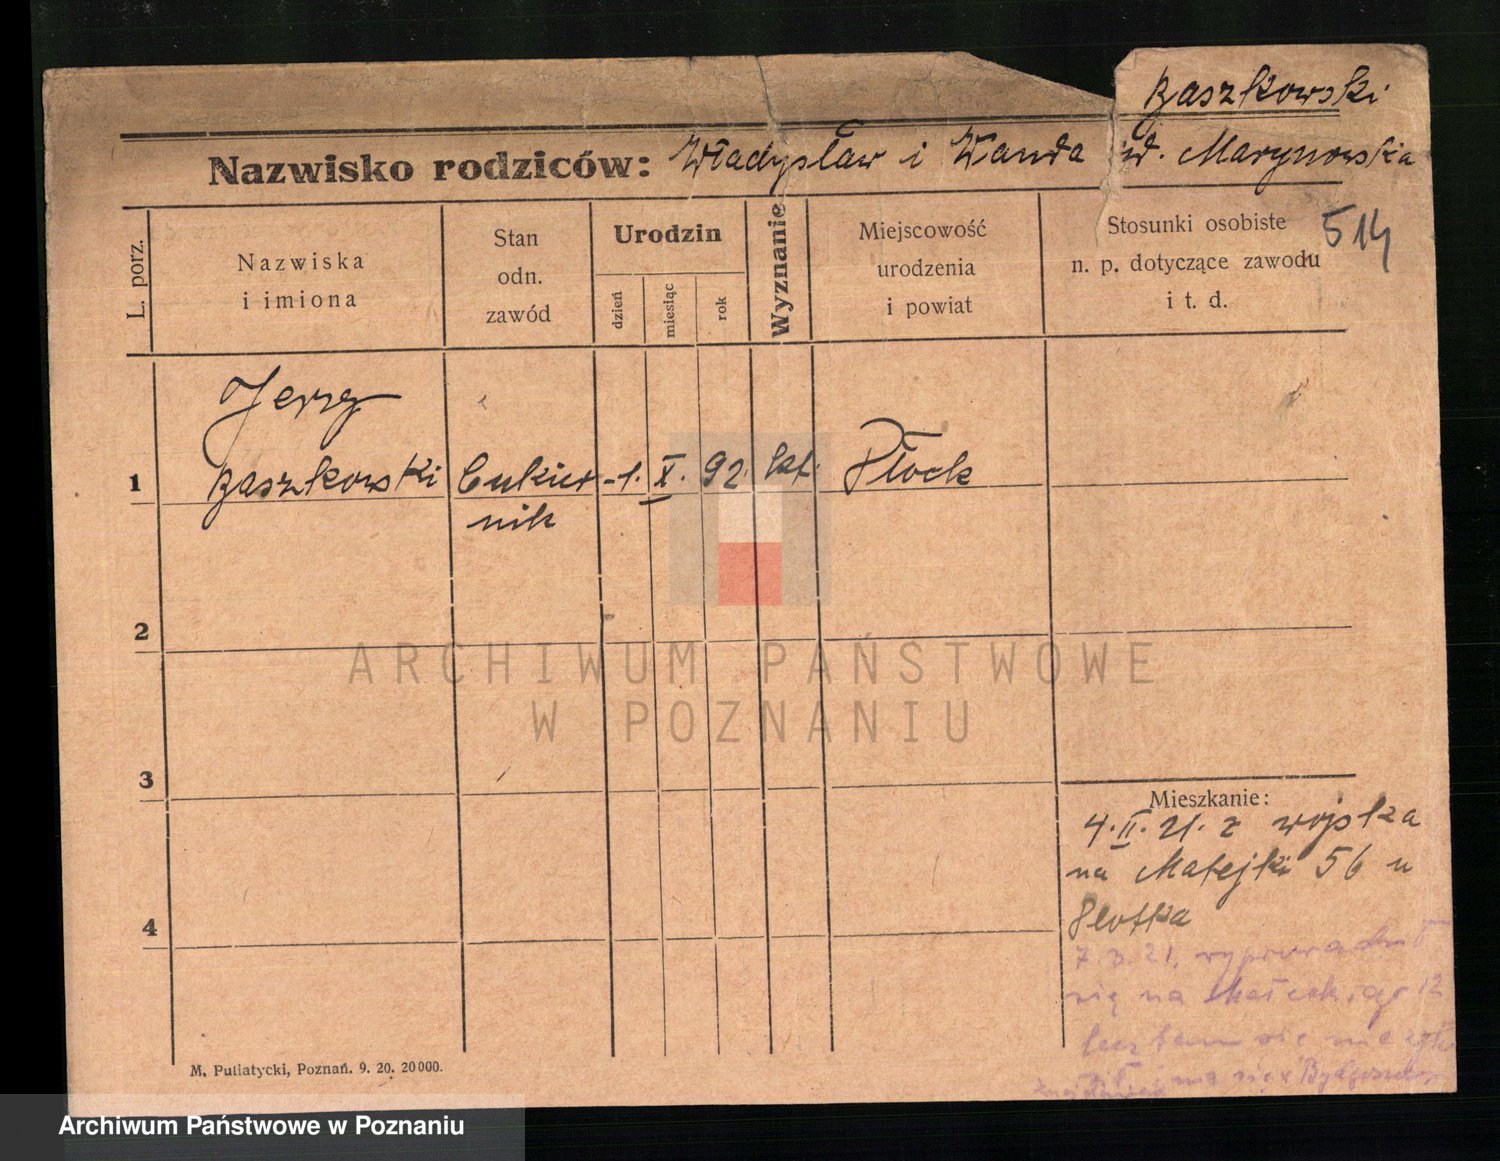 Baszkowski
Nazwisko rodziców: Władysław i Wanda Marynowska
514
L. porz.
Nazwiska
i imiona
Stan
odn.
zawód
Urodzin
dzień
miesiąc
rok
Wyznanie
Miejscowość
urodzenia
i powiat
Stosunki osobiste
n. p. dotyczące zawodu
i t. d.
1
Jerzy
Baszkowski
Cukier-
nik
1. X. 92. kat.
Płock
2
3
4
Mieszkanie:
4. II. 21. z wojska
na Matejki 56 u
7.3.21. wyprowadził
się na Małeckiego 12
lecz tam się nie
ma się w Bydgoszczy
M. Putiatycki, Poznań. 9. 20. 20000.
ARCHIWUM PAŃSTWOWE
W POZNANIU
Archiwum Państwowe w Poznaniu